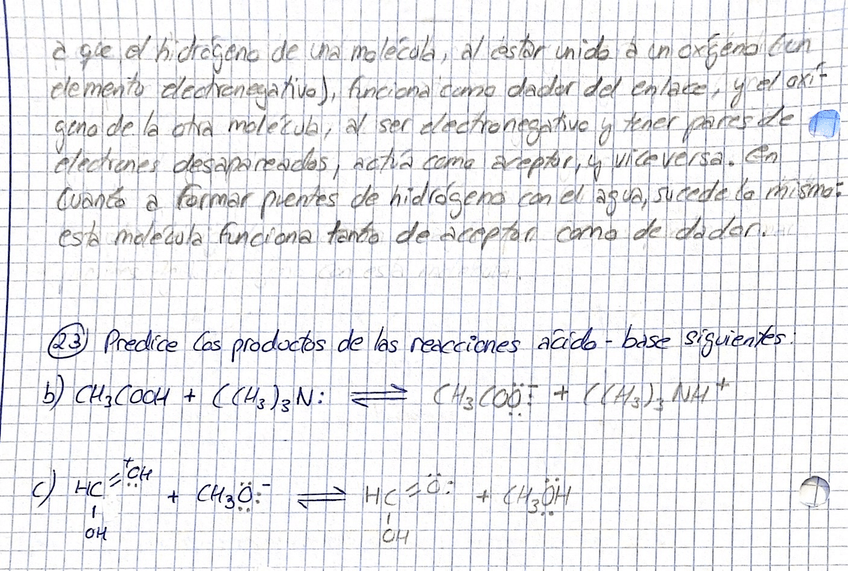 a que el hidrógeno de una molécula, al estar unido a un oxígeno (un
elemento electronegativo), funciona como dador del enlace, y el oxí-
geno de la otra molécula, al ser electronegativo y tener pares de
electrones desapareados, actúa como aceptor, y viceversa. En
cuanto a formar puentes de hidrógeno con el agua, sucede lo mismo:
esta molécula funciona tanto de aceptor como de dador.
23) Predice los productos de las reacciones ácido-base siguientes:
b) CH₃COOH + (CH₃)₃N: ⇌ CH₃COÖ:⁻ + (CH₃)₃NH⁺
c) HC=⁺ÖH + CH₃Ö:⁻ ⇌ HC=Ö: + CH₃ÖH
OH OH